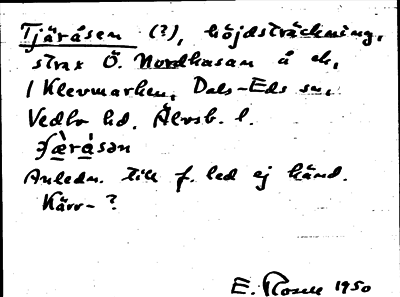 Tjäråsen (?), höjdsträckning,
strax Ö. Nordhusan å ek.
1 Klevmarken, Dals-Eds sn.
Vedbo hd. Älvsb. l.
Anledn. till f. led ej känd.
Kärr- ?
E. Rosell 1950